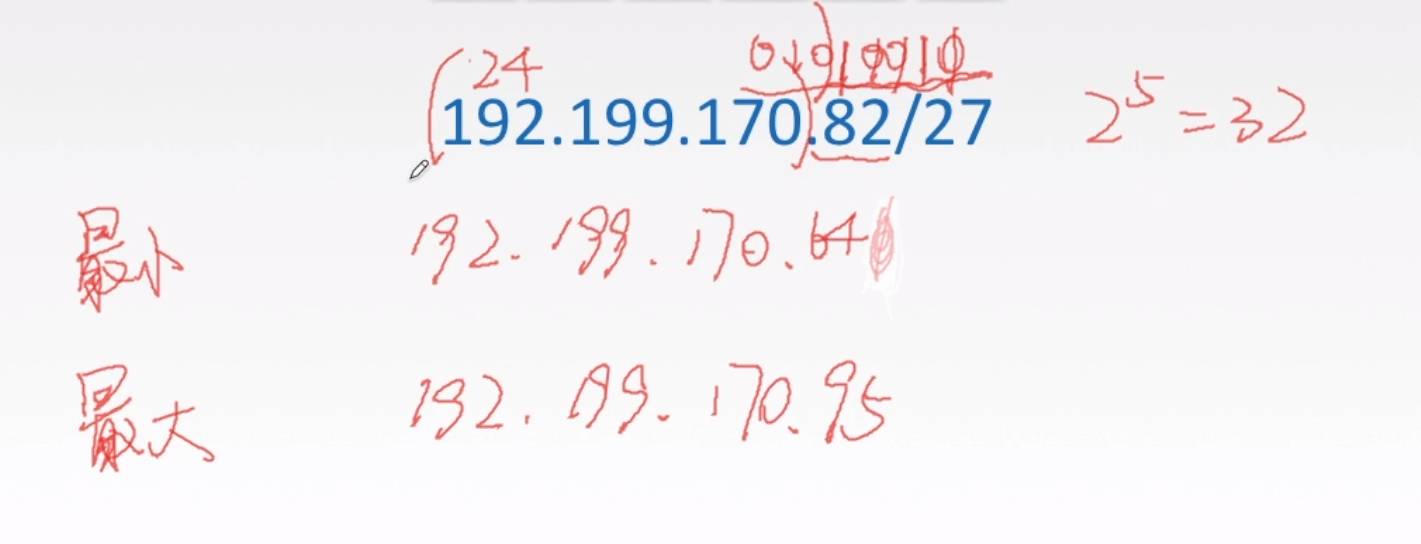 24 01010010
192.199.170.82/27 2⁵=32
最小 192.199.170.64
最大 192.199.170.95